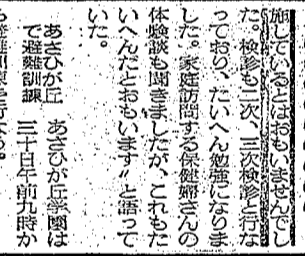 施しているとはおもいませんでし
た。検診も二次、三次検診と行な
っており、たいへん勉強になりま
した。家庭訪問する保健婦さんの
体験談も聞きましたが、これもた
いへんだとおもいます〃と語って
いた。
あさひが丘
で避難訓練
あさひが丘学園は
三十日午前九時か